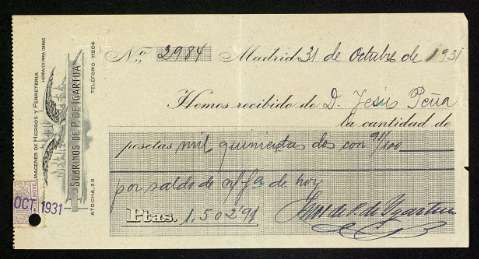 ALMACENES DE HIERROS Y FERRETERIA
SOBRINOS DE P. DE IGARTUA
ATOCHA,
TELÉFONO 11204
OCT. 1931
N.º 2984 Madrid 31 de Octubre de 1931
Hemos recibido de D. Jesús Peña
la cantidad de
pesetas mil quinientas dos con 91/100
por saldo de s/ fra de hoy
Ptas. 1.502'91
Sob de P. de Ygartua